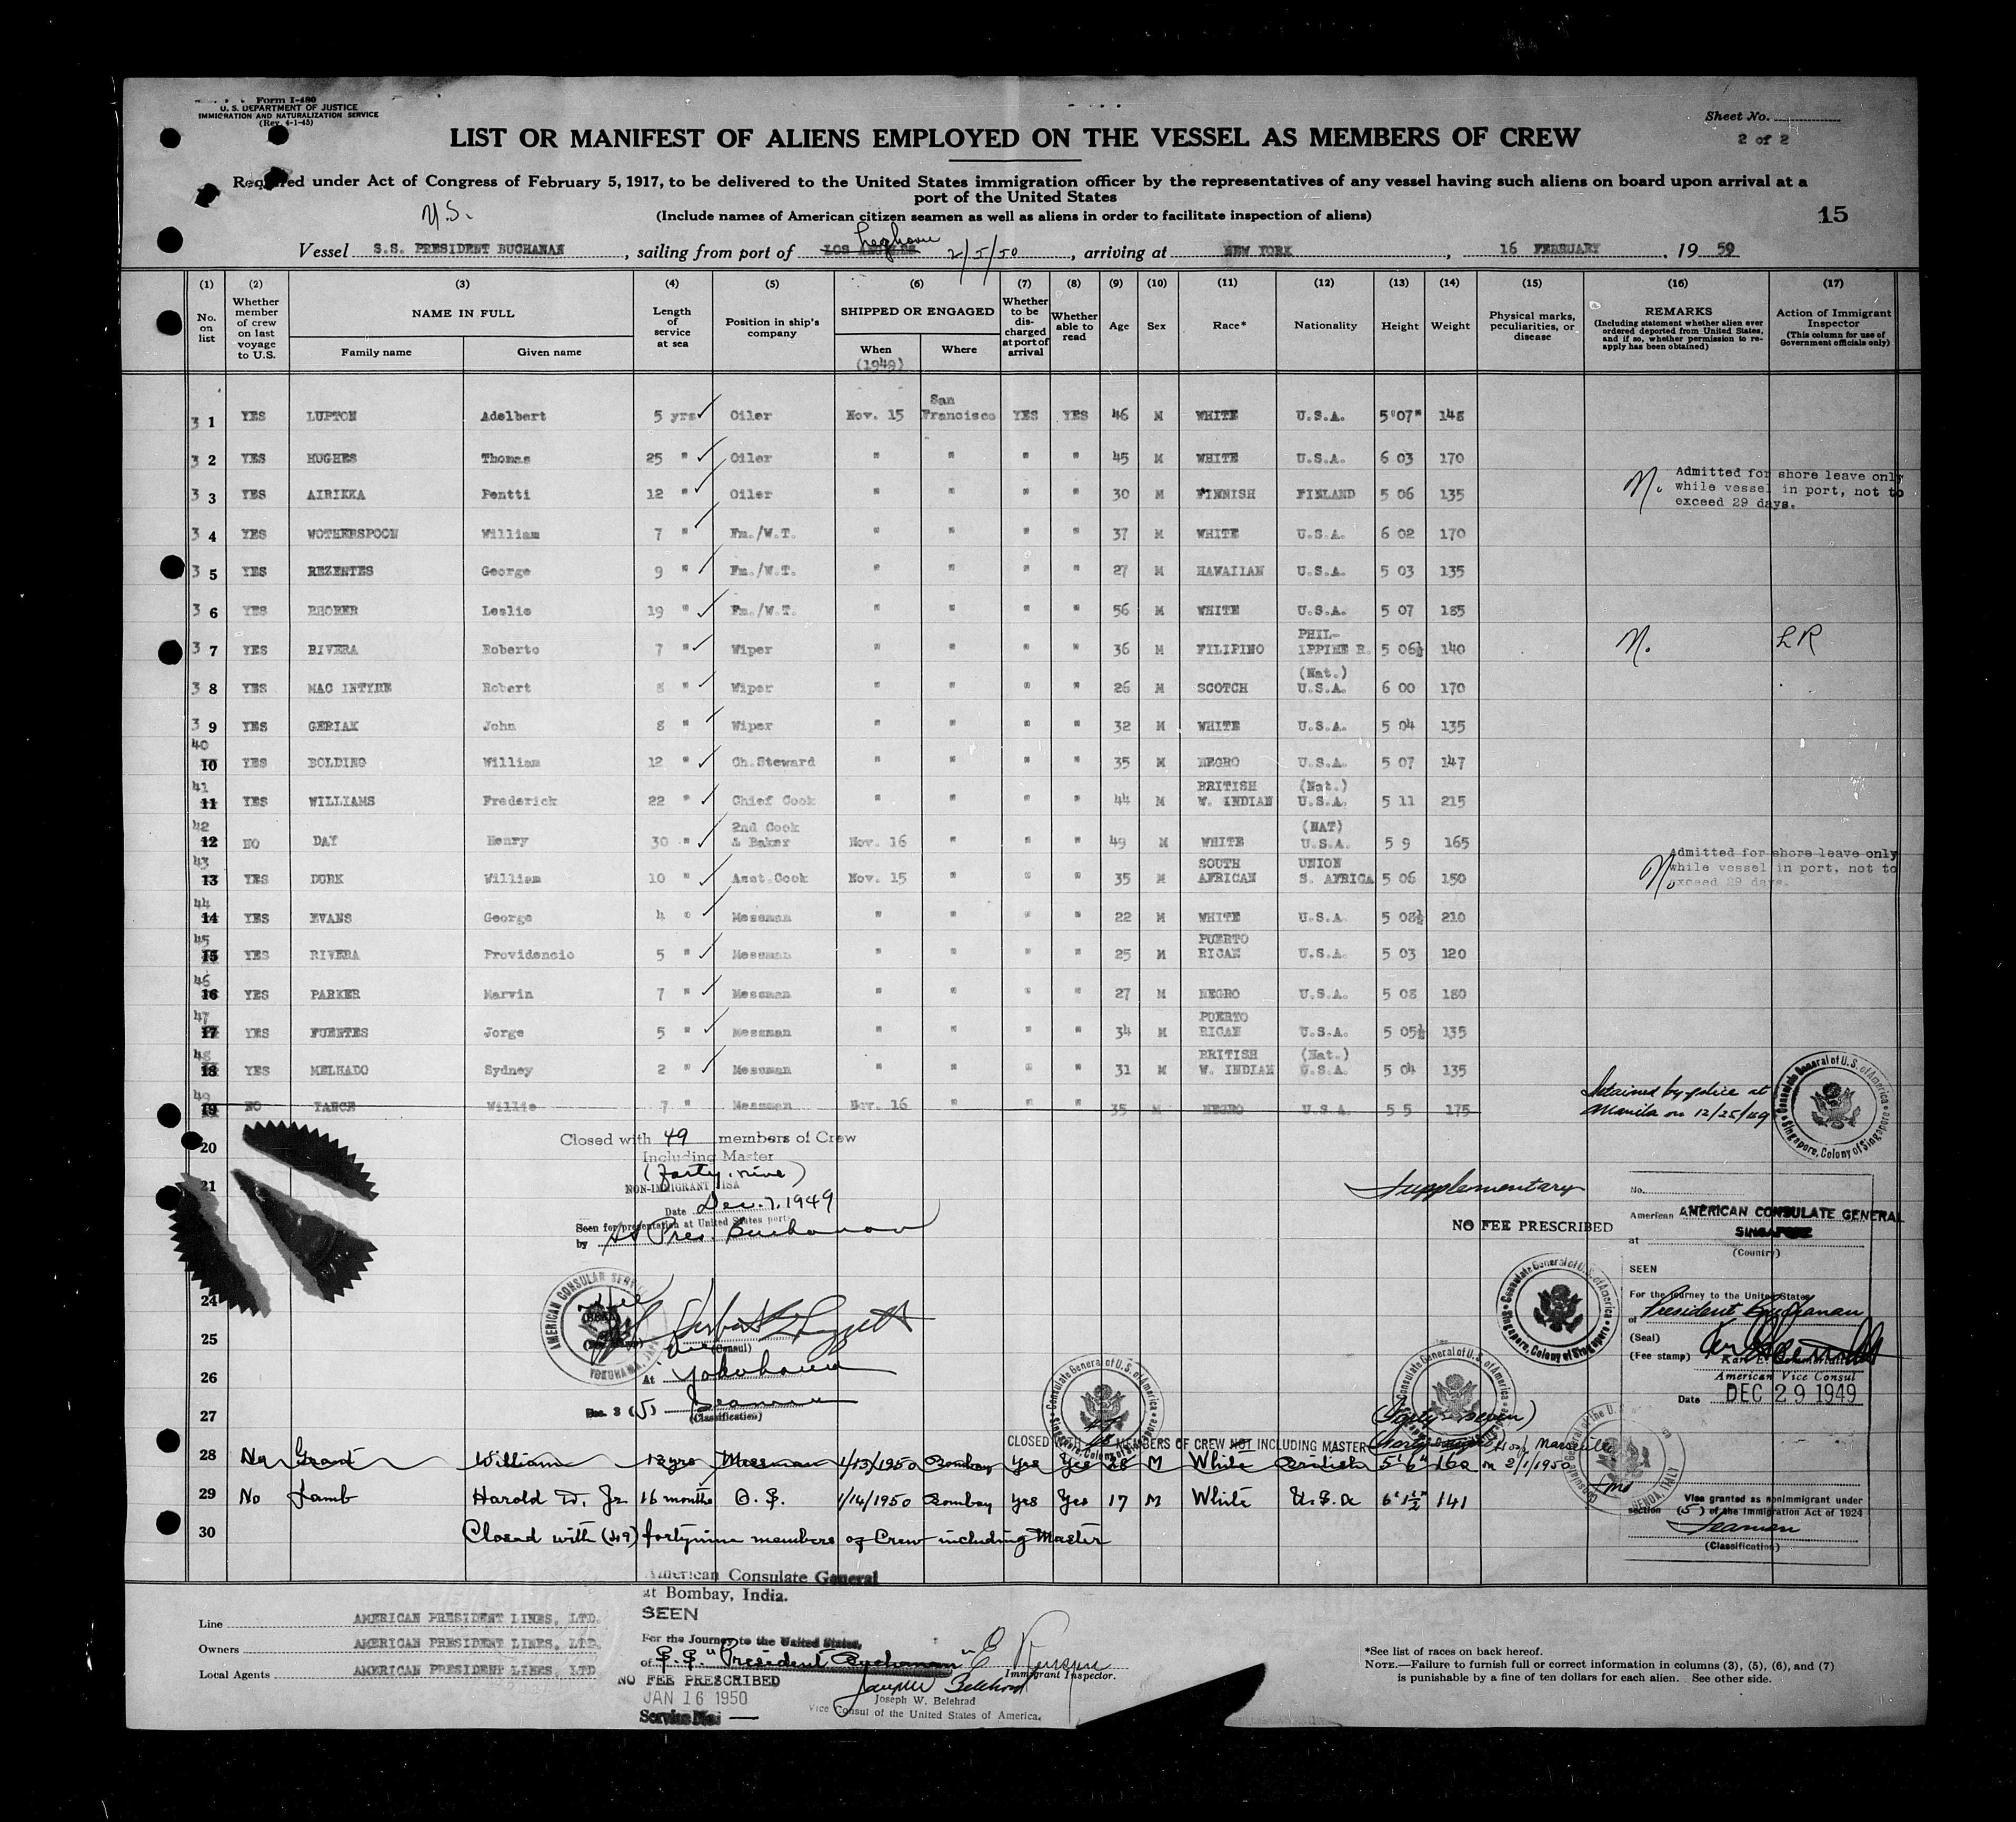 Form I-480
U. S. DEPARTMENT OF JUSTICE
IMMIGRATION AND NATURALIZATION SERVICE
(Rev. 4-1-45)
Sheet No.
2 of 2
LIST OR MANIFEST OF ALIENS EMPLOYED ON THE VESSEL AS MEMBERS OF CREW
Required under Act of Congress of February 5, 1917, to be delivered to the United States immigration officer by the representatives of any vessel having such aliens on board upon arrival at a
port of the United States
(Include names of American citizen seamen as well as aliens in order to facilitate inspection of aliens)
15
Vessel S.S. PRESIDENT BUCHANAN, sailing from port of LOS ANGELES Leghorn 2/5/50, arriving at NEW YORK, 16 FEBRUARY, 19 59
(1) (2) (3) (4) (5) (6) (7) (8) (9) (10) (11) (12) (13) (14) (15) (16) (17)
No. on list
Whether member of crew on last voyage to U.S.
NAME IN FULL
Family name
Given name
Length of service at sea
Position in ship's company
SHIPPED OR ENGAGED
When
(1949)
Where
Whether to be discharged at port of arrival
Whether able to read
Age
Sex
Race*
Nationality
Height
Weight
Physical marks, peculiarities, or disease
REMARKS
(Including statement whether alien ever ordered deported from United States, and if so, whether permission to reapply has been obtained)
Action of Immigrant Inspector
(This column for use of Government officials only)
3 1 YES LUPTON Adelbert 5 yrs Oiler Nov. 15 San Francisco YES YES 46 M WHITE U.S.A. 5'07" 148
3 2 YES HUGHES Thomas 25 " Oiler " " " " 45 M WHITE U.S.A. 6 03 170
3 3 YES AIRIKKA Pentti 12 " Oiler " " " " 30 M FINNISH FINLAND 5 06 135 N. Admitted for shore leave only while vessel in port, not to exceed 29 days.
3 4 YES WOTHERSPOON William 7 " Fm./W.T. " " " " 37 M WHITE U.S.A. 6 02 170
3 5 YES REZENTES George 9 " Fm./W.T. " " " " 27 M HAWAIIAN U.S.A. 5 03 135
3 6 YES RHOBER Leslie 19 " Fm./W.T. " " " " 56 M WHITE U.S.A. 5 07 185
3 7 YES RIVERA Roberto 7 " Wiper " " " " 36 M FILIPINO PHIL-IPPINE R. 5 06½ 140 N. LR
3 8 YES MAC INTYRE Robert 8 " Wiper " " " " 26 M SCOTCH (Nat.) U.S.A. 6 00 170
3 9 YES GERIAK John 8 " Wiper " " " " 32 M WHITE U.S.A. 5 04 135
40 10 YES BOLDING William 12 " Ch. Steward " " " " 35 M NEGRO U.S.A. 5 07 147
41 11 YES WILLIAMS Frederick 22 " Chief Cook " " " " 44 M BRITISH W. INDIAN (Nat.) U.S.A. 5 11 215
42 12 NO DAY Henry 30 " 2nd Cook & Baker Nov. 16 " " " 49 M WHITE (NAT) U.S.A. 5 9 165
43 13 YES DURK William 10 " Asst. Cook Nov. 15 " " " 35 M SOUTH AFRICAN UNION S. AFRICA 5 06 150 No Admitted for shore leave only while vessel in port, not to exceed 29 days.
44 14 YES EVANS George 4 " Messman " " " " 22 M WHITE U.S.A. 5 08½ 210
45 15 YES RIVERA Providencio 5 " Messman " " " " 25 M PUERTO RICAN U.S.A. 5 03 120
46 16 YES PARKER Marvin 7 " Messman " " " " 27 M NEGRO U.S.A. 5 08 180
47 17 YES FUERTES Jorge 5 " Messman " " " " 34 M PUERTO RICAN U.S.A. 5 05½ 135
48 18 YES MELHADO Sydney 2 " Messman " " " " 31 M BRITISH W. INDIAN (Nat.) U.S.A. 5 04 135
49 19 NO YANCE Willie 7 " Messman Nov. 16 " " " 35 M NEGRO U.S.A. 5 5 175 Detained by police at Manila on 12/25/49
Consulate General of U.S. of America
Singapore, Colony of Singapore
20
Closed with 49 members of Crew
Including Master
(forty-nine)
21
NON-IMMIGRANT VISA
Date Dec. 7, 1949
Seen for presentation at United States port
by SS Pres. Buchanan
Supplementary
NO FEE PRESCRIBED
No.
American AMERICAN CONSULATE GENERAL
at SINGAPORE
(Country)
SEEN
For the journey to the United States
of President Buchanan
(Seal)
(Fee stamp)
American Vice Consul
Date DEC 29 1949
AMERICAN CONSULAR SERVICE
YOKOHAMA, JAPAN
(Consul)
24
25
26
At Yokohama
27
Sec. 3 (5) Seaman
(Classification)
(forty-seven)
CLOSED WITH 47 MEMBERS OF CREW NOT INCLUDING MASTER
28 No Grant William 12 yrs Messman 1/13/1950 Bombay Yes Yes 28 M White British 5' 6" 160 Hosp Marseille on 2/1/1950
29 No Lamb Harold D. Jr. 16 months O.S. 1/14/1950 Bombay Yes Yes 17 M White U.S.A 6' 1½" 141
Consulate General of the U.S.
GENOA, ITALY
Visa granted as nonimmigrant under
section (5) of the Immigration Act of 1924
Seaman
(Classification)
30 Closed with (49) fortynine members of Crew including Master
American Consulate General
at Bombay, India.
SEEN
For the Journey to the United States,
of S.S. "President Buchanan"
NO FEE PRESCRIBED
JAN 16 1950
Service No.
Joseph W. Belehrad
Vice Consul of the United States of America.
Immigrant Inspector.
Line AMERICAN PRESIDENT LINES, LTD.
Owners AMERICAN PRESIDENT LINES, LTD.
Local Agents AMERICAN PRESIDENT LINES, LTD
*See list of races on back hereof.
NOTE.—Failure to furnish full or correct information in columns (3), (5), (6), and (7)
is punishable by a fine of ten dollars for each alien. See other side.